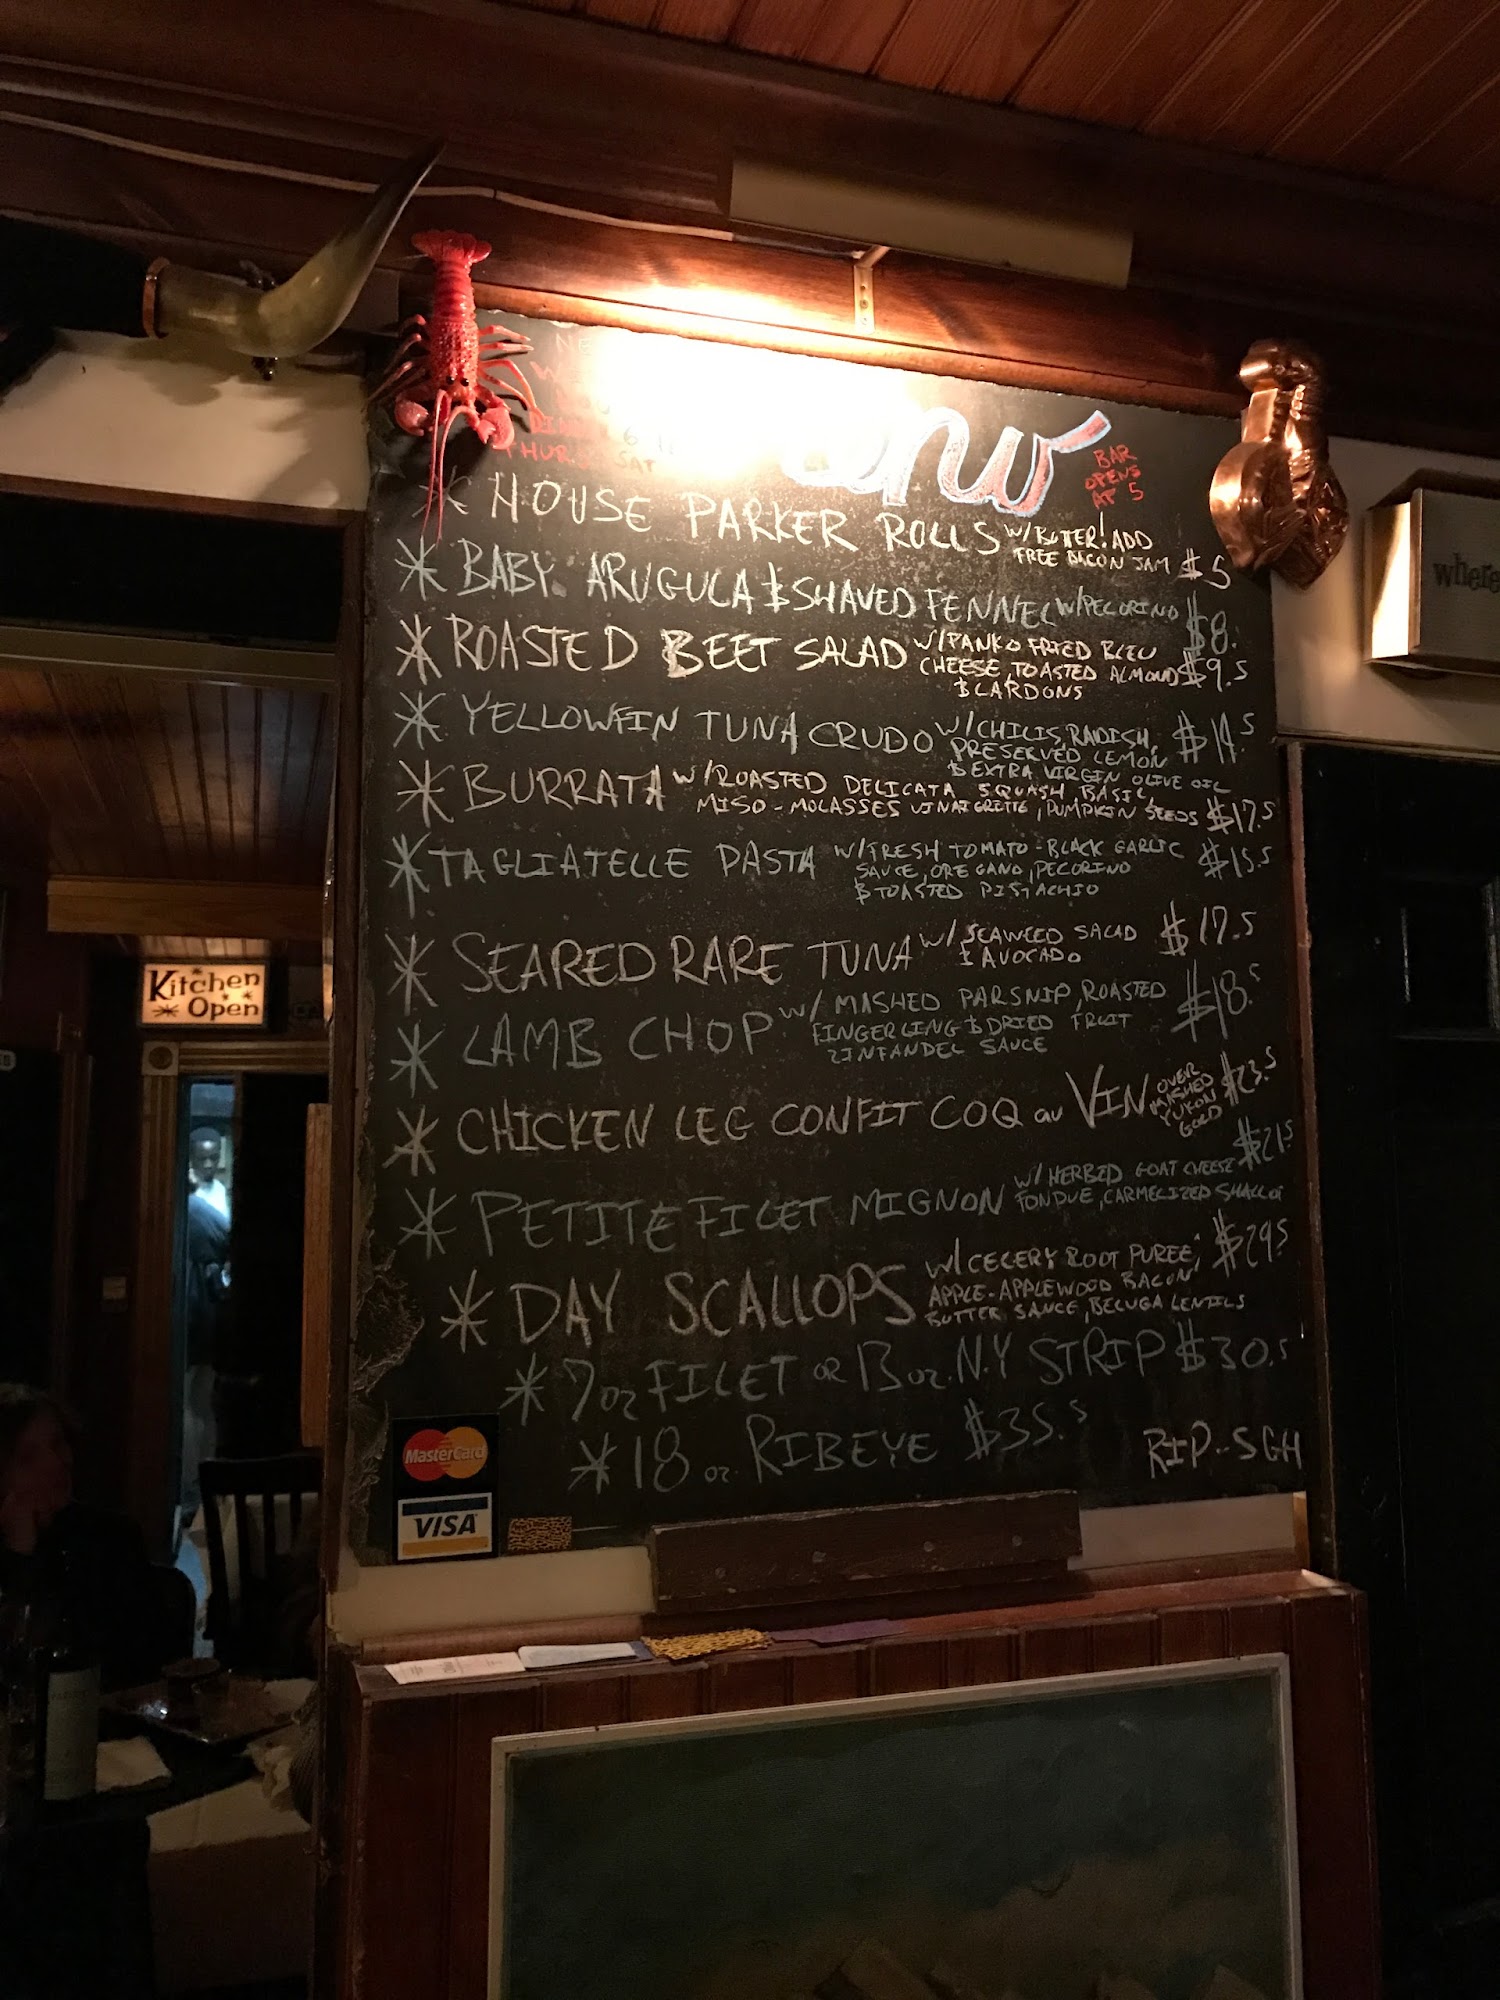 NE
DIN
6
THUR. SAT
enu
BAR
OPENS
AT 5
* HOUSE PARKER ROLLS W/ BUTTER! ADD
FREE BACON JAM $5
* BABY ARUGULA & SHAVED FENNEL W/PECORINO $8.
* ROASTED BEET SALAD W/PANKO FRIED BLEU
CHEESE, TOASTED ALMOND $9.5
& LARDONS
* YELLOWFIN TUNA CRUDO W/CHILIS, RADISH, $14.5
PRESERVED LEMON
& EXTRA VIRGIN OLIVE OIL
* BURRATA W/ROASTED DELICATA SQUASH, BASIL,
MISO-MOLASSES VINAIGRETTE, PUMPKIN SEEDS $17.5
* TAGLIATELLE PASTA W/FRESH TOMATO-BLACK GARLIC $15.5
SAUCE, OREGANO, PECORINO
& TOASTED PISTACHIO
* SEARED RARE TUNA W/ SEAWEED SALAD $17.5
& AVOCADO
* LAMB CHOP W/ MASHED PARSNIP, ROASTED $18.5
FINGERLING & DRIED FRUIT
ZINFANDEL SAUCE
* CHICKEN LEG CONFIT COQ au VIN OVER $23.5
MASHED
YUKON
GOLD
* PETITE FILET MIGNON W/ HERBED GOAT CHEESE $21.5
FONDUE, CARMELIZED SHALLOT
* DAY SCALLOPS W/CELERY ROOT PUREE, $29.5
APPLE-APPLEWOOD BACON
BUTTER SAUCE, BELUGA LENTILS
* 7oz FILET OR 13oz. N.Y STRIP $30.5
* 18 oz. RIBEYE $35.5
RIP-SGH
MasterCard
VISA
Kitchen
Open
where